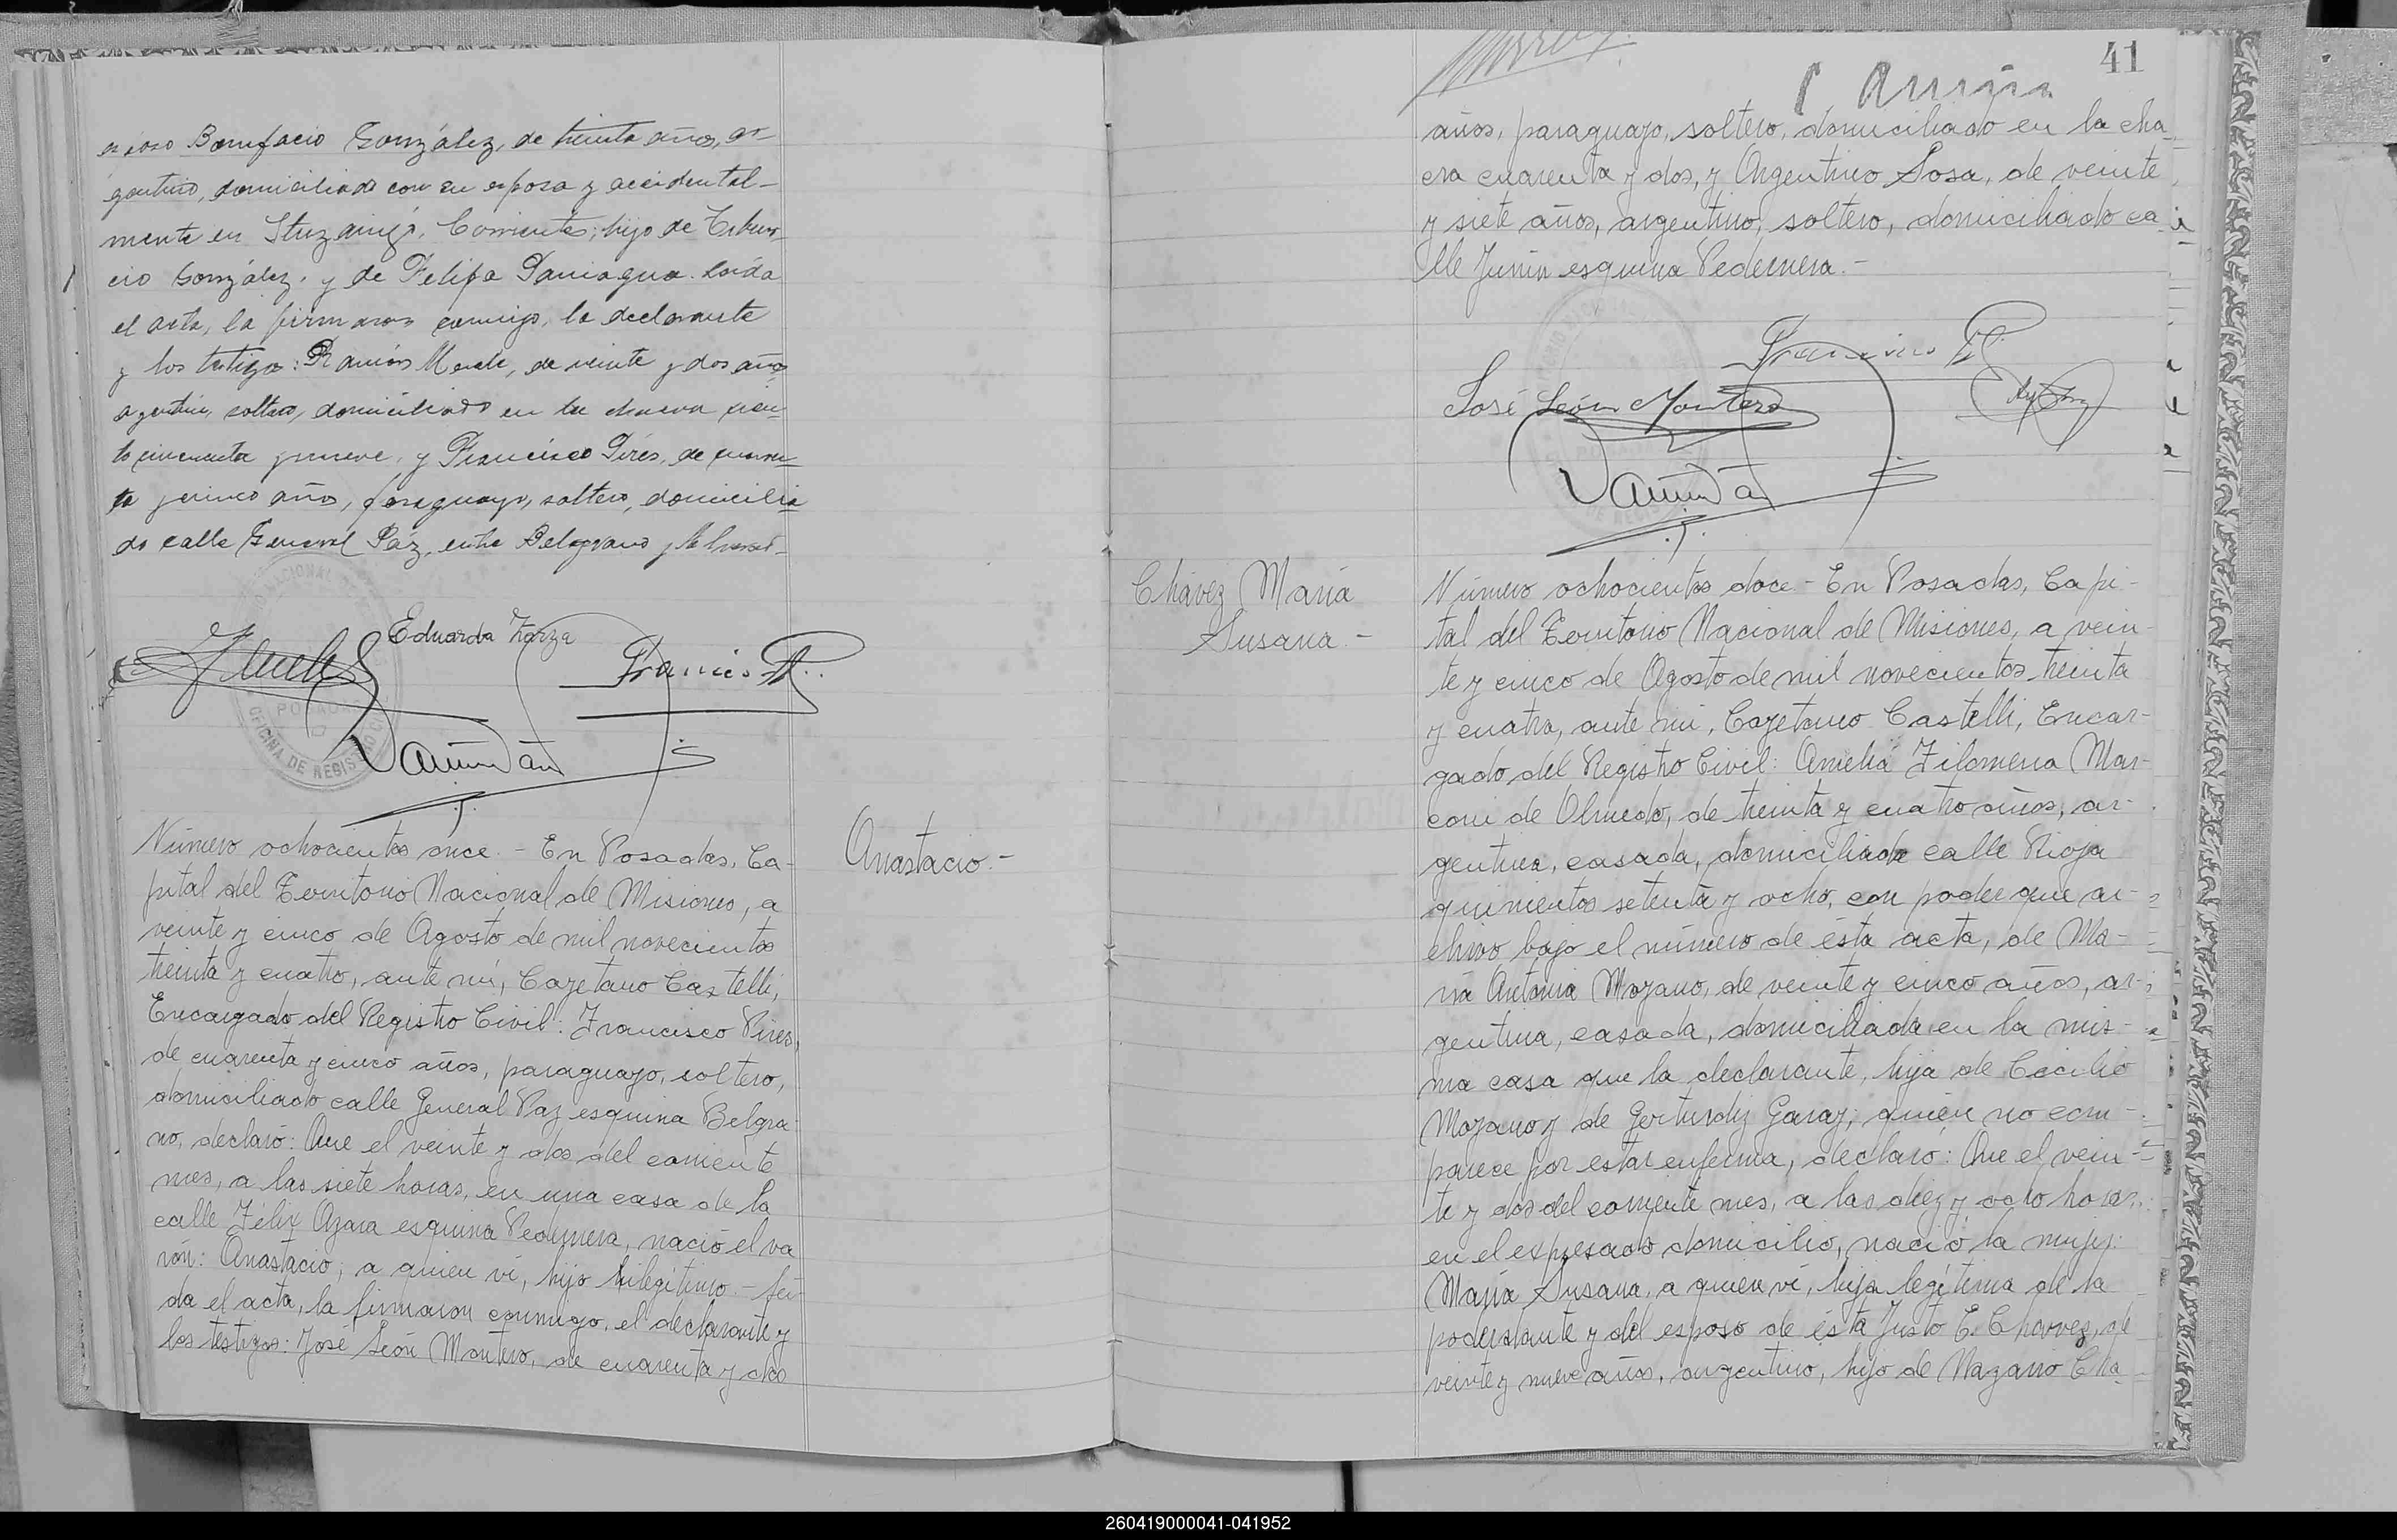 esposo Bonifacio González, de treinta años, ar-
gentino, domiciliado con su esposa y accidental-
mente en Ituzaingó, Corrientes; hijo de Tibur-
cio González, y de Felipa Paniagua. Leída
el acta, la firmaron conmigo, la declarante
y los testigos: Ramón, de veinte y dos años
argentino, soltero, domiciliado en la chacra cien-
to cincuenta y nueve, y Francisco Pires, de cuaren-
ta y cinco años, paraguayo, soltero, domicilia
do calle General Paz, entre Belgrano y
Eduarda Zarza
Francisco P.
POSADAS
OFICINA DE REGISTRO
Número ochocientos once. - En Posadas, Ca-
pital del Territorio Nacional de Misiones, a
veinte y cinco de Agosto de mil novecientos
treinta y cuatro, ante mi, Cayetano Castelli,
Encargado del Registro Civil: Francisco Pires,
de cuarenta y cinco años, paraguayo, soltero,
domiciliado calle General Paz esquina Belgra-
no, declaró: Que el veinte y dos del corriente
mes, a las siete horas, en una casa de la
calle Félix Azara esquina Pedernera, nació el va
rón: Anastacio, a quien ví, hijo ilegítimo. - Leí-
da el acta, la firmaron conmigo, el declarante y
los testigos: José León Montero, de cuarenta y dos
Anastacio. -
41
años, paraguayo, soltero, domiciliado en la cha-
cra cuarenta y dos, y Argentino Sosa, de veinte
y siete años, argentino, soltero, domiciliado ca-
lle Junín esquina Pedernera. -
Francisco P.
José León Montero
Chávez María
Susana. -
Número ochocientos doce - En Posadas, Capi-
tal del Territorio Nacional de Misiones, a vein-
te y cinco de Agosto de mil novecientos treinta
y cuatro, ante mi, Cayetano Castelli, Encar-
gado del Registro Civil: Amelia Filomena Mar-
coni de Olmedo, de treinta y cuatro años, ar-
gentina, casada, domiciliada calle Rioja
quinientos setenta y ocho, con poder que ar-
chivo bajo el número de ésta acta, de Ma-
ría Antonia Moyano, de veinte y cinco años, ar-
gentina, casada, domiciliada en la mis-
ma casa que la declarante, hija de Cecilio
Moyano y de Gertrudiz Garay, quien no com-
parece por estar enferma, declaró: Que el vein-
te y dos del corriente mes, a las diez y ocho horas,
en el expresado domicilio, nació la mujer:
María Susana, a quien ví, hija legítima de la
poderdante y del esposo de ésta Justo E. Chavez, de
veinte y nueve años, argentino, hijo de Nazario Cha-
260419000041-041952